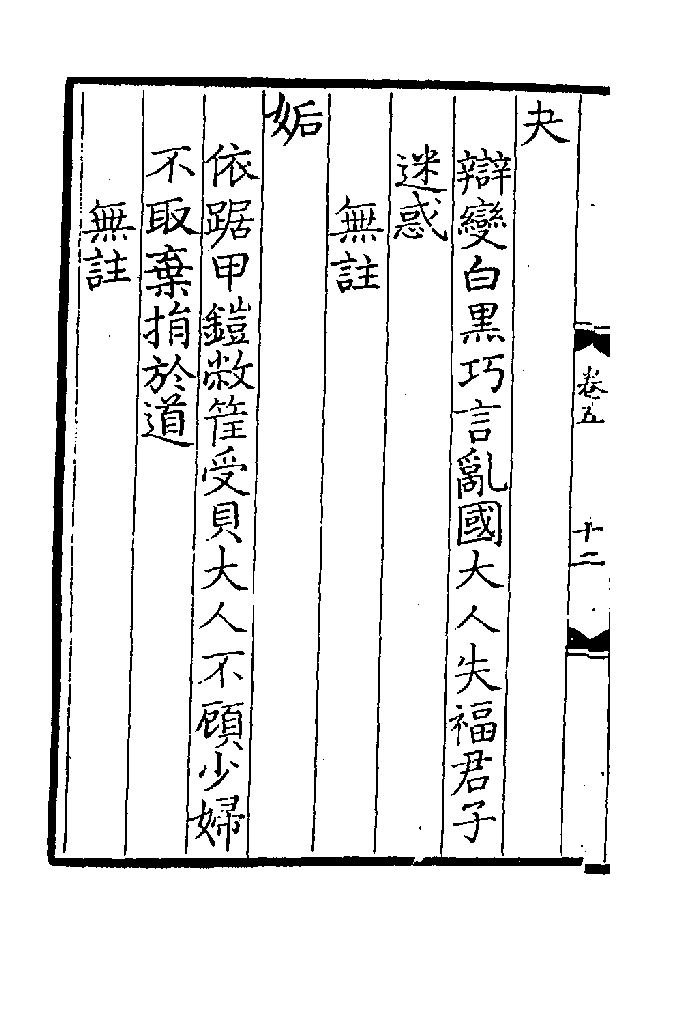 卷五
十二
夬
辯變白黒巧言亂國大人失福君子
迷惑
無註
姤
依踞甲鎧敝筐受貝大人不顧少婦
不取棄捐於道
無註